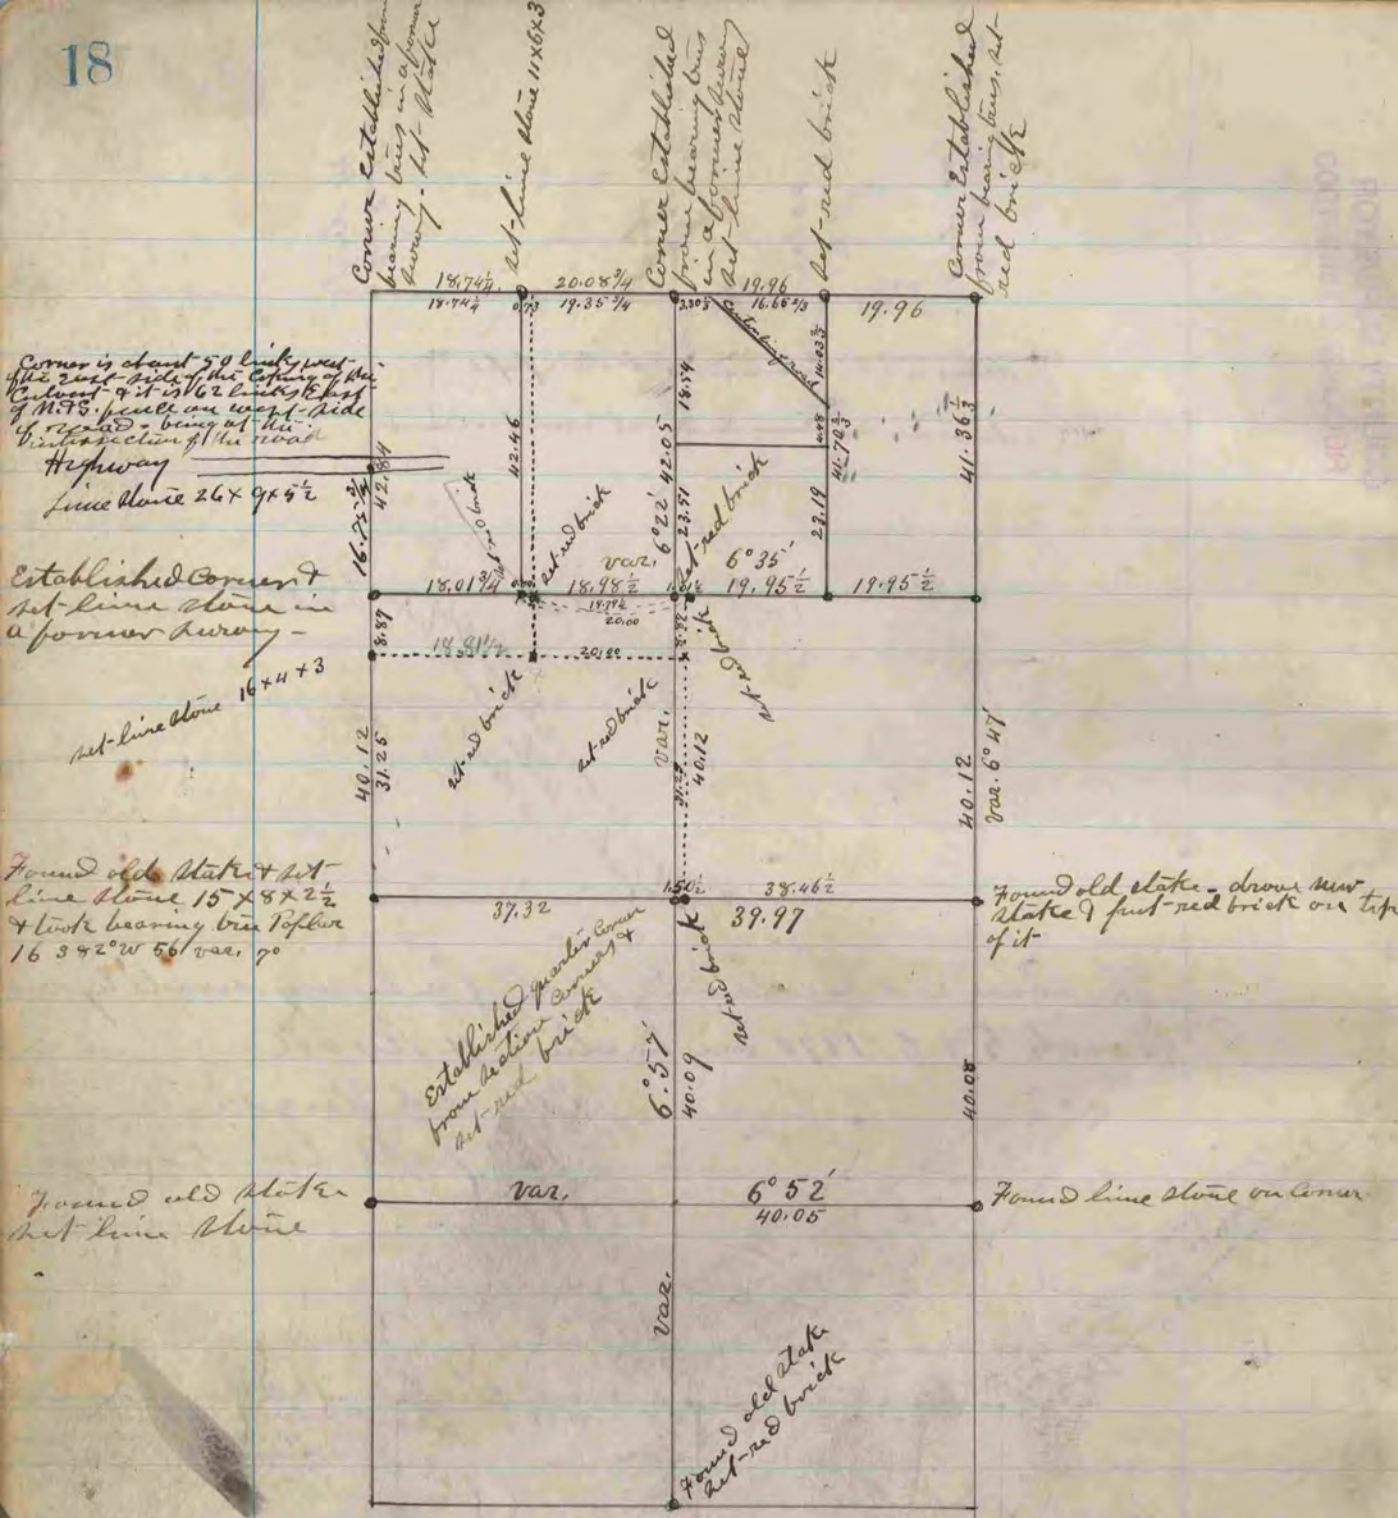 18
Corner Established from
bearing trees in a former
survey. set stake
set lime stone 11x6x3
Corner Established
from bearing trees
in a former survey
set lime stone
set red brick
Corner Established
from bearing trees, set
red brick
18.74¼ 20.08¾ 19.96
18.74¼ 0.73 19.35¾ 16.65⅔ 19.96
Corner is about 50 links west
of the east side of the Coping of the
Culvert & it is 62 links East
of N. & S. fence on west side
of road - being at the
intersection of the road
Highway
Lime Stone 26 x 9 x 5½
42.84
16.75¾
42.46
18.54
42.05
6° 22'
23.51
14.03⅔
4.48
41.70⅔
23.19
41.36⅓
set red brick
set red brick
set red brick
var. 6° 35'
18.01¾ 18.98½ 19.95½ 19.95½
20.00
Established Corner &
set lime stone in
a former survey -
8.87
18.81½ 20.00
8.82
set red brick
set lime stone 16 x 4 x 3
set red brick
set red brick
40.12
31.25
var.
40.12
40.12
var. 6° 47'
Found old stake & set
lime stone 15 x 8 x 2½
& took bearing tree Poplar
16 S 82° W 56 var. 7°
1.50½ 38.46½
37.32 39.97
Found old stake - drove new
stake & put red brick on top
of it
Established quarter Corner
from section corners &
set red brick
set red brick
6° 57'
40.09
40.08
Found old stake
set lime stone
var. 6° 52'
40.05
Found lime stone on Corner
var.
Found old stake
set red brick